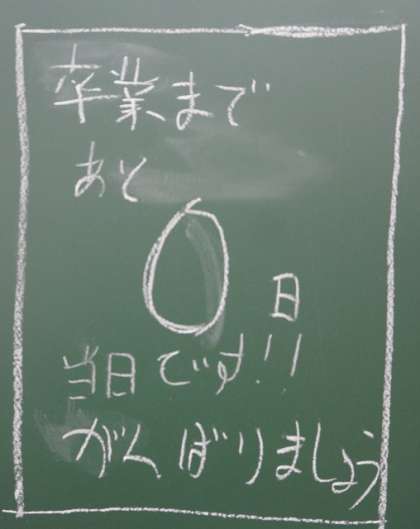 卒業まで
あと
0日
当日です!!
がんばりましょう